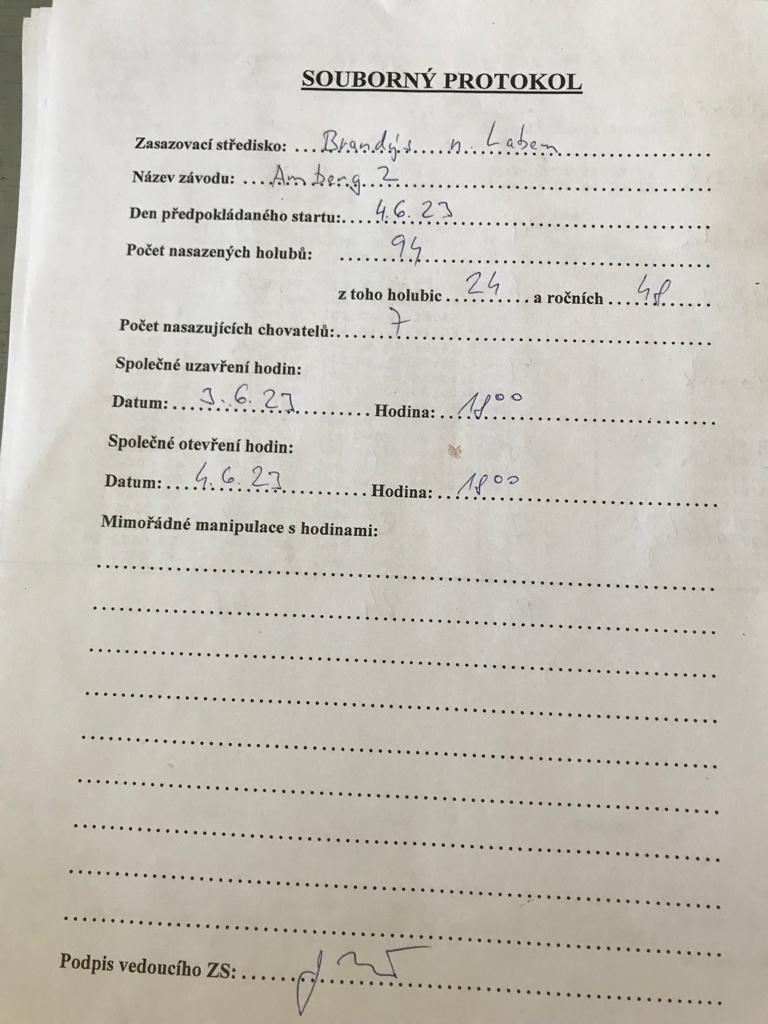 SOUBORNÝ PROTOKOL
Zasazovací středisko: Brandýs n. Labem
Název závodu: Amberg 2
Den předpokládaného startu: 4.6.23
Počet nasazených holubů: 94
z toho holubic 24 a ročních 48
Počet nasazujících chovatelů: 7
Společné uzavření hodin:
Datum: 3.6.23 Hodina: 18⁰⁰
Společné otevření hodin:
Datum: 4.6.23 Hodina: 18⁰⁰
Mimořádné manipulace s hodinami:
Podpis vedoucího ZS: